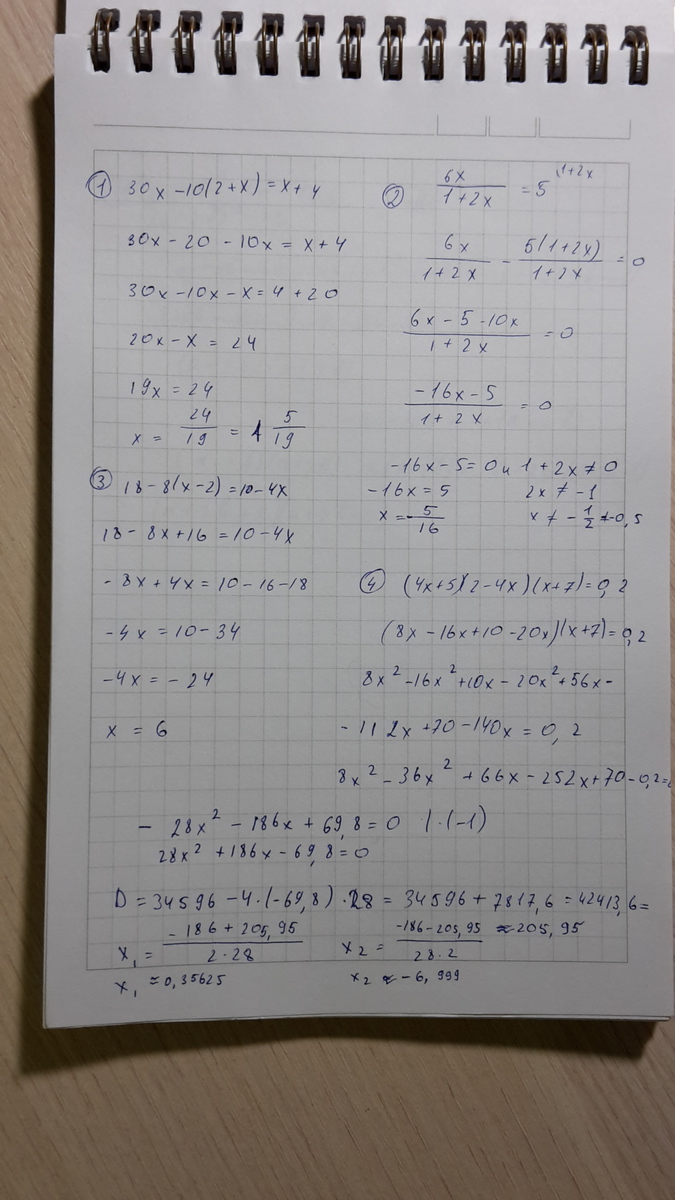 ① 30x - 10(2+x) = x + 4
30x - 20 - 10x = x + 4
30x - 10x - x = 4 + 20
20x - x = 24
19x = 24
x = 24/19 = 1 5/19
② 6x/(1+2x) = 5 \1+2x
6x/(1+2x) - 5(1+2x)/(1+2x) = 0
(6x - 5 - 10x)/(1+2x) = 0
(-16x - 5)/(1+2x) = 0
-16x - 5 = 0 и 1 + 2x ≠ 0
-16x = 5 2x ≠ -1
x = -5/16 x ≠ -1/2 ≠ -0,5
③ 18 - 8(x-2) = 10 - 4x
18 - 8x + 16 = 10 - 4x
-8x + 4x = 10 - 16 - 18
-4x = 10 - 34
-4x = -24
x = 6
④ (4x+5)(2-4x)(x+7) = 0,2
(8x - 16x + 10 - 20x)(x+7) = 0,2
8x² - 16x² + 10x - 20x² + 56x -
- 112x + 70 - 140x = 0,2
8x² - 36x² + 66x - 252x + 70 - 0,2 =
- 28x² - 186x + 69,8 = 0 | · (-1)
28x² + 186x - 69,8 = 0
D = 34596 - 4 · (-69,8) · 28 = 34596 + 7817,6 = 42413,6 =
≈ 205,95
x₁ = (-186 + 205,95)/(2 · 28) x₂ = (-186 - 205,95)/(28 · 2)
x₁ ≈ 0,35625 x₂ ≈ -6,999